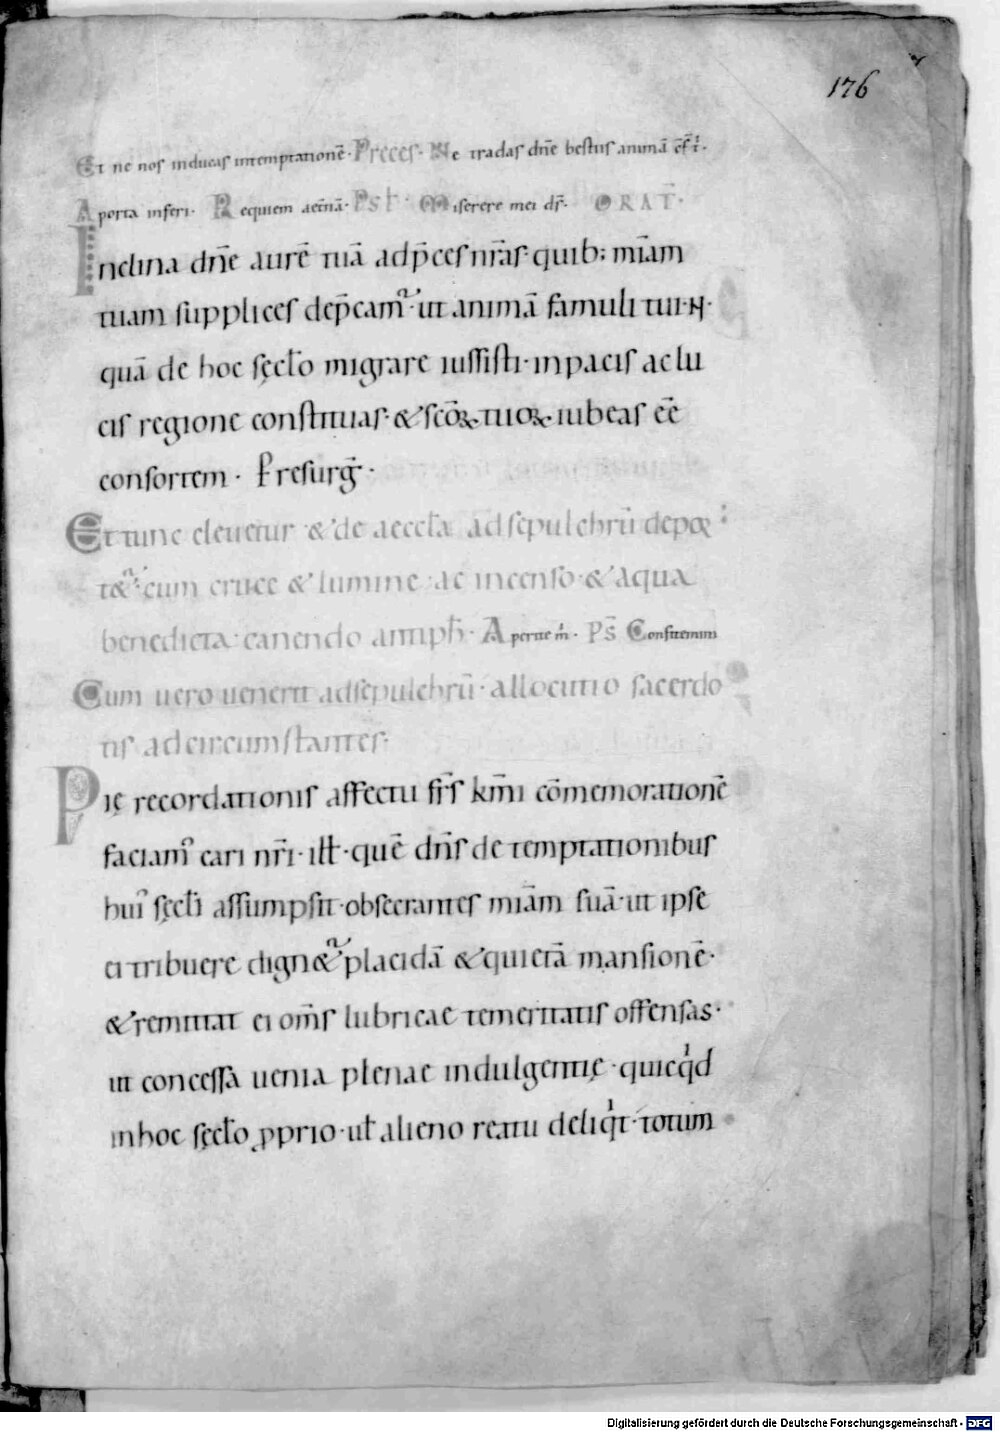 176
Et ne nos inducas intemptationē· Preces· Ne tradas dn̄e bestiis animā cf̄ t̄·
A porta inferi· Requiem aet̄nā· Psł· Miserere mei dſ̄· ORAT̄·
Inclina dn̄e aurē tuā adp̄ces nr̄as· quib; mīam
tuam supplices dep̄cam᷑· ut animā famuli tui·N·
quā de hoc sęcło migrare iussisti· inpacis ac lu
cis regione constituas· & sc̄oꝝ tuoꝝ iubeas eē
consortem· P̄resurḡ·
Et tunc eleuetur & de aeccła adsepulchrū depor
t&᷑· cum cruce & lumine ac incenso· & aqua
benedicta· canendo antiph̄· Aperite m̄· Ps̄ Confitemini
Cum uero uenerit adsepulchrū· allocutio sacerdo
tis adcircumstantes·
Pię recordationis affectu fr̄s km̄i cōmemorationē
faciam᷒ cari nr̄i· ilł· quē dn̄s de temptationibus
hui᷒ sęcłi assumpsit· obsecrantes mīam suā· ut ipse
ei tribuere dign&᷑ placidā & quietā mansionē·
& remittat ei om̄s lubricae temeritatis offensas·
ut concessa uenia plenae indulgentię· quicqͥd
inhoc sęcło ꝓprio· uł alieno reatu deliqͥt· totum
Digitalisierung gefördert durch die Deutsche Forschungsgemeinschaft - DFG